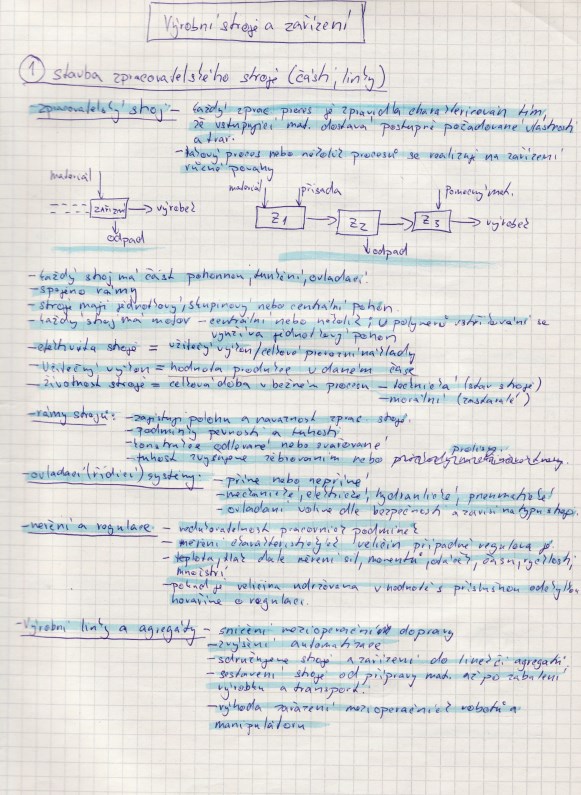 Výrobní stroje a zařízení
1 Stavba zpracovatelského stroje (části, linky)
zpracovatelský stroj - každý zprac. proces je zpravidla charakterizován tím,
že vstupující mat. dostává postupně požadované vlastnosti
a tvar.
- takový proces nebo několik procesů se realizuje na zařízení
různé povahy
materiál
materiál přísada pomocný mat.
zařízení výrobek
Z1 Z2 Z3 výrobek
odpad
odpad
- každý stroj má část pohonnou, funkční, ovládací.
- spojeno rámy
stroje mají jednotkový, skupinový nebo centrální pohon.
- každý stroj má motor - centrální nebo několik, u polymerů vstřikování se
využívá jednotkový pohon
- efektivita stroje = užitečný výkon/celkové provozní náklady
- Užitečný výkon = hodnota produkce v daném čase
- životnost stroje = celková doba v běžném provozu - technická (stav stroje)
- morální (zastaralé)
- rámy strojů: - zajišťují polohu a návaznost zprac. stroje.
- podmínky pevnosti a tuhosti
- konstrukce odlévané nebo svařované
- tuhost zvyšujeme žebrováním nebo
- ovládací (řídící) systémy: - přímé nebo nepřímé
- mechanické, elektrické, hydraulické, pneumatické
- ovládání volíme dle bezpečnosti a závisí na typu stroje.
- měření a regulace - reprodukovatelnost pracovních podmínek
- měření charakteristických veličin, případně regulova je.
- teplota, tlak dále měření sil, momentů, otáček, času, rychlosti,
množství
- pokud je veličina udržována v hodnotě s příslušnou odchylkou
hovoříme o regulaci.
- Výrobní linky a agregáty - snížení mezioperační dopravy
- zvýšení automatizace
- sdružujeme stroje a zařízení do linek či agregátů
- sestavení strojů od přípravy mat. až po zabalení
výrobku a transport.
- výhoda zařazení mezioperačních robotů a
manipulátorů